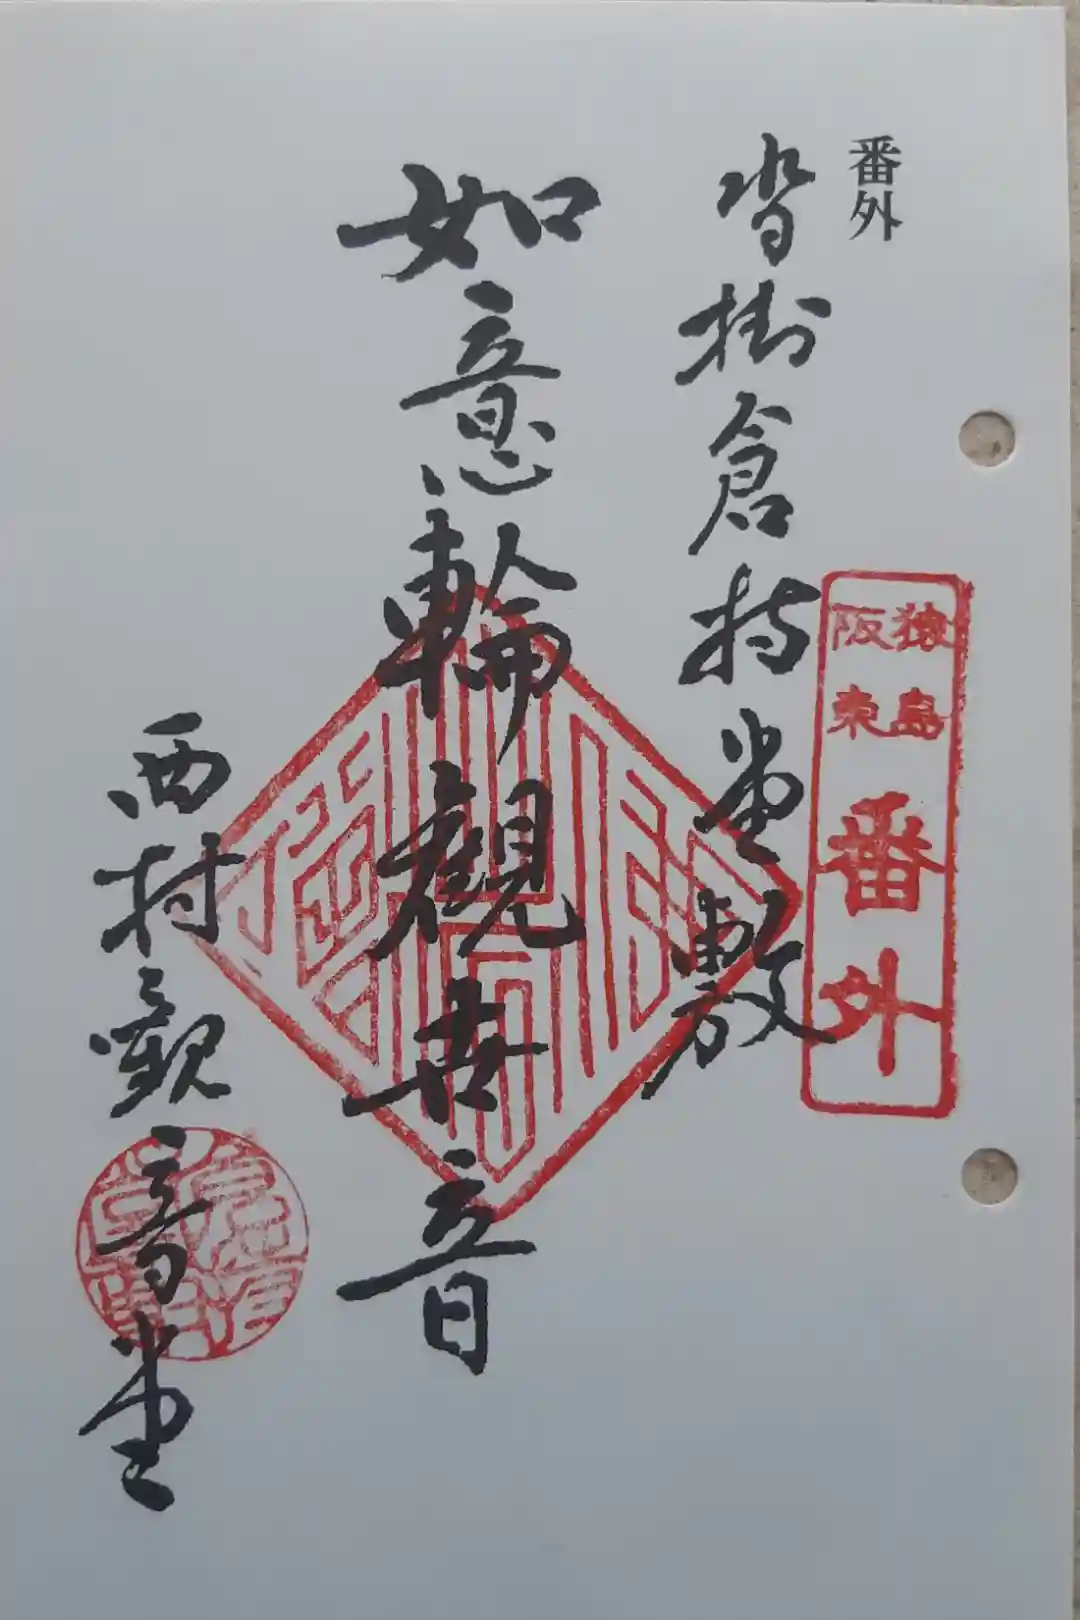 番外
沓掛倉持堂敷
猿島
阪東
番外
如意輪観世音
西村観音堂